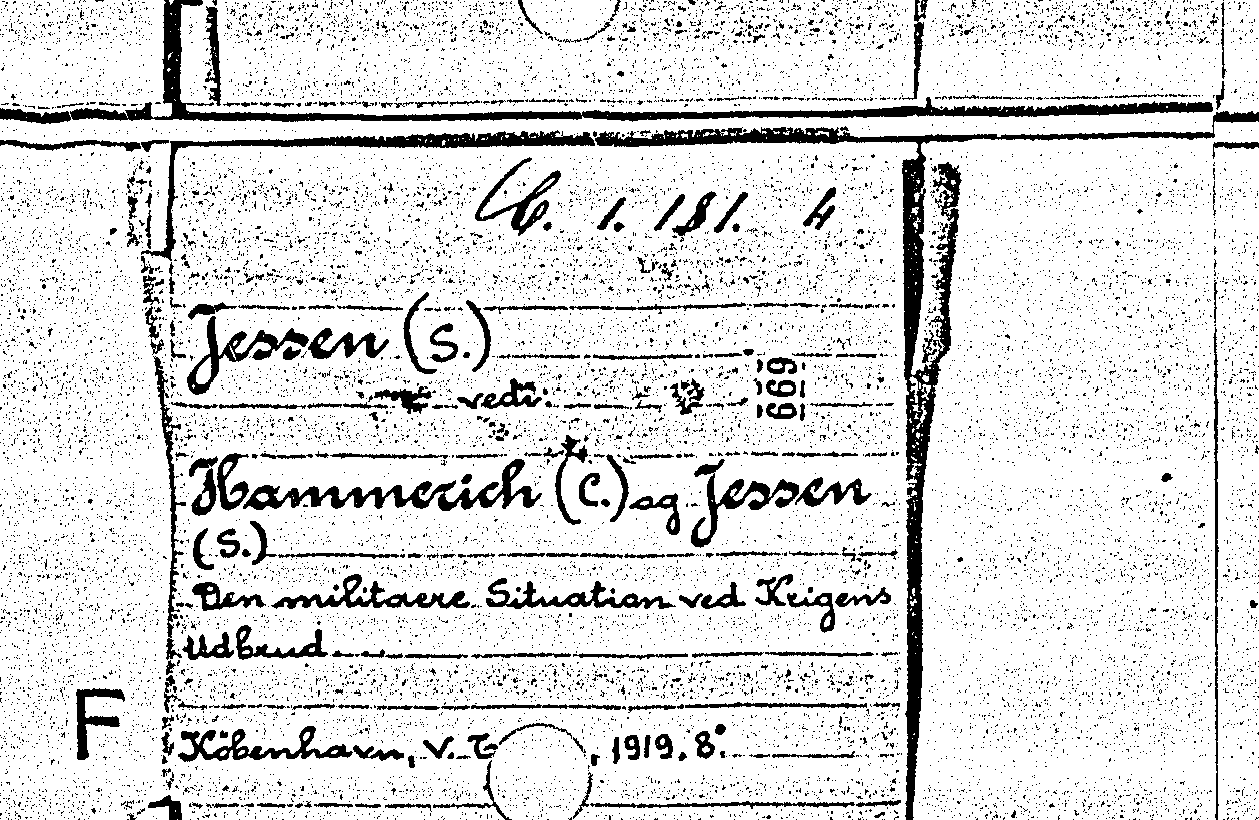 C. 1. 181. 4
Jessen (S.)
vedi:
669
Hammerich (C.) og Jessen
(S.)
Den militaere Situation ved Krigens
Udbrud...
F
Köbenhavn, V. , 1919, 8°.